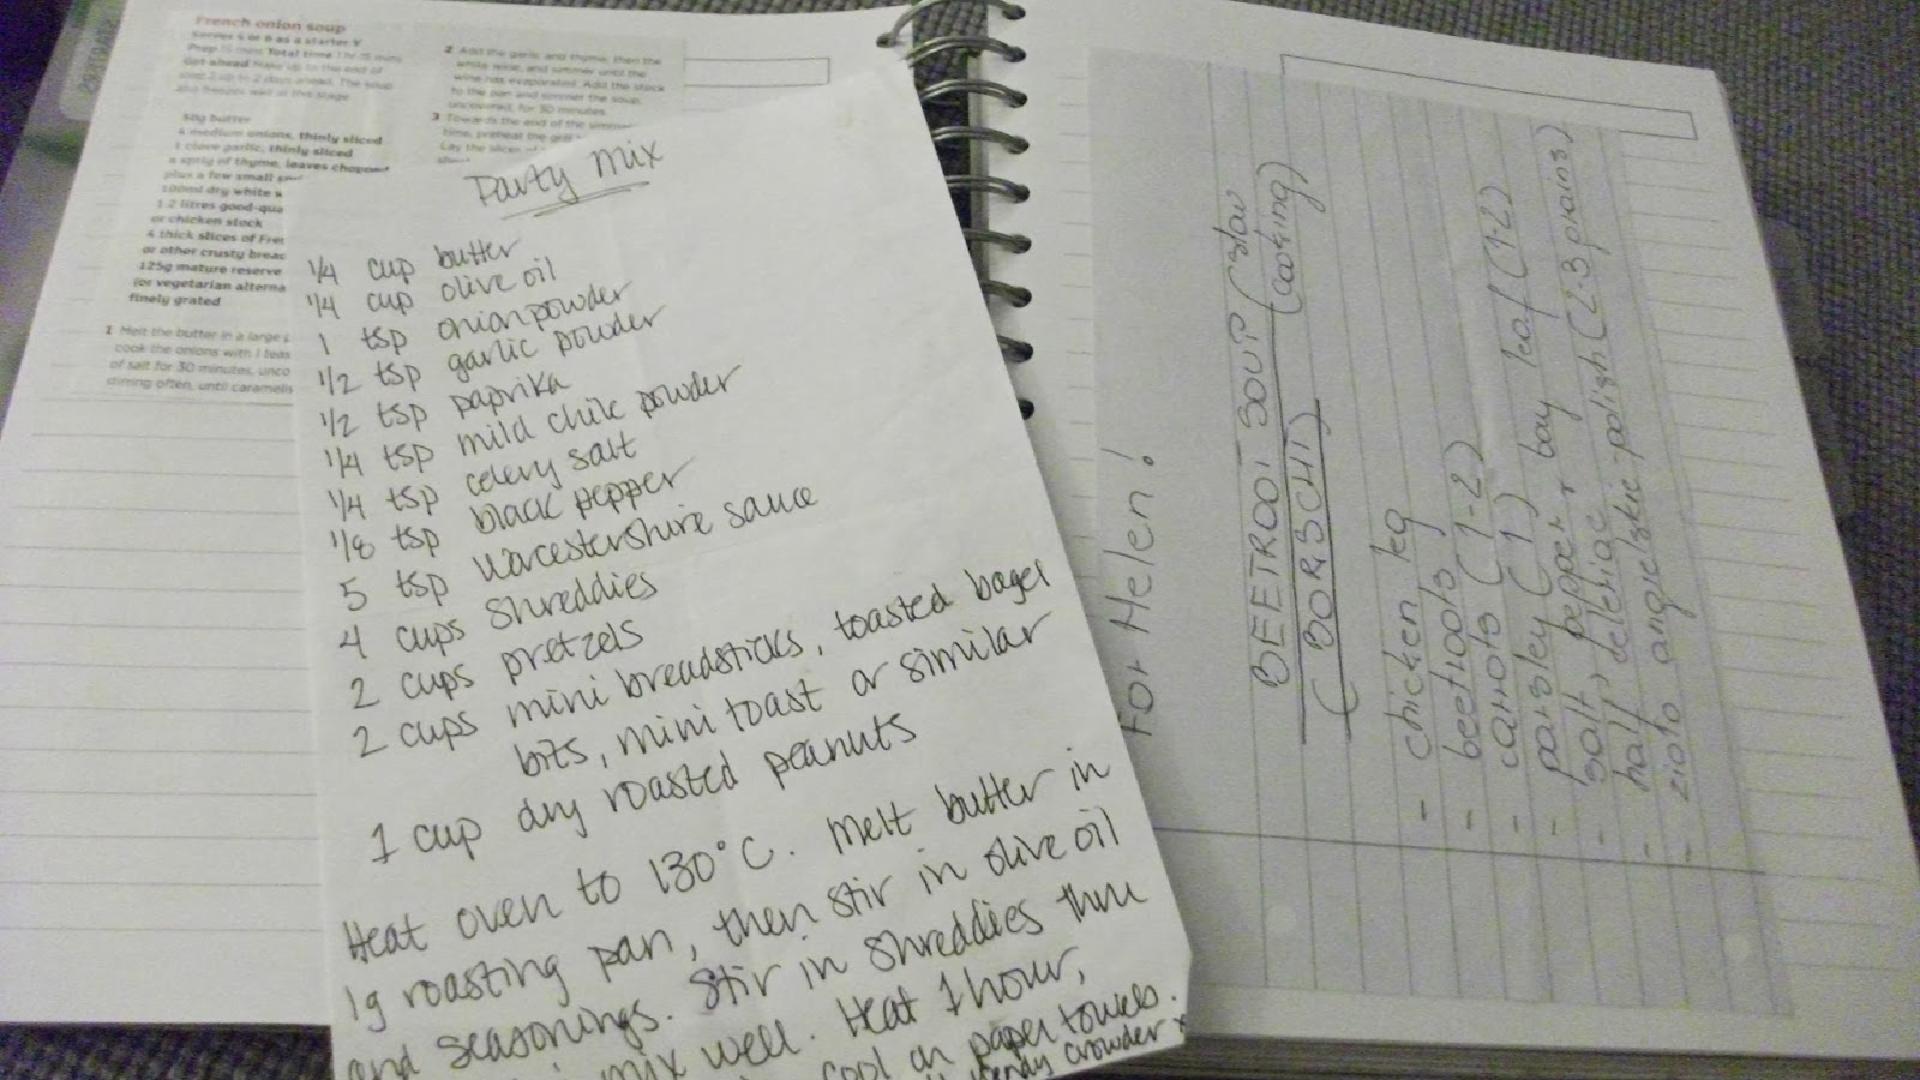 French onion soup
Serves 4 or 6 as a starter V
Prep 15 mins Total time 1 hr 15 mins
Get ahead Make up to the end of
step 2 up to 2 days ahead. The soup
also freezes well at this stage
50g butter
4 medium onions, thinly sliced
1 clove garlic, thinly sliced
a sprig of thyme, leaves chopped
plus a few small
100ml dry white w
1.2 litres good-qua
or chicken stock
4 thick slices of Fre
or other crusty breac
125g mature reserve
(or vegetarian alterna
finely grated
1 Melt the butter in a large
cook the onions with 1 teas
of salt for 30 minutes, unco
stirring often, until caramelis
2 Add the garlic and thyme, then the
white wine, and simmer until the
wine has evaporated. Add the stock
to the pan and simmer the soup,
uncovered, for 30 minutes.
3 Towards the end of the simme
time, preheat the gril
Lay the slices of
Party Mix
1/4 cup butter
1/4 cup olive oil
1 tsp onion powder
1/2 tsp garlic powder
1/2 tsp paprika
1/4 tsp mild chile powder
1/4 tsp celery salt
1/8 tsp black pepper
5 tsp Worcestershire sauce
4 cups Shreddies
2 cups pretzels
2 cups mini breadsticks, toasted bagel
bits, mini toast or similar
1 cup dry roasted peanuts
Heat oven to 130°C. Melt butter in
lg roasting pan, then stir in olive oil
and seasonings. Stir in Shreddies thru
mix well. Heat 1 hour,
cool on paper towels.
Wendy Crowder x
For Helen!
BEETROOT SOUP (slow
(BORSCH) cooking)
- chicken leg
- beetroots (1-2)
- carrots (1-2)
- parsley (1)
- salt, pepper, bay leaf (1-2)
- half deleriac
- ziele angielskie polish (2-3 prains)